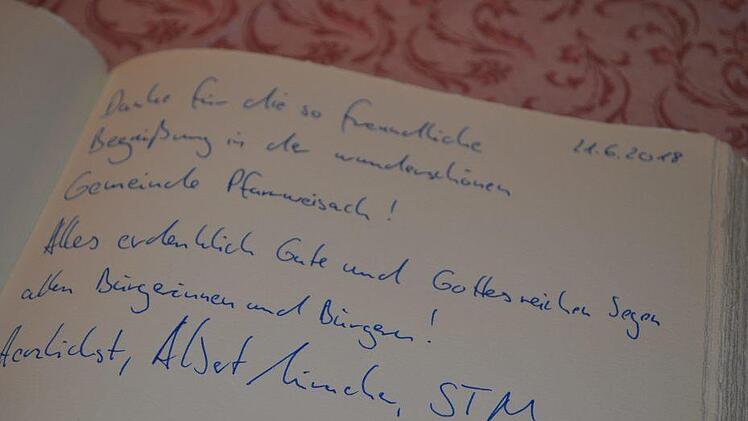 21.6.2018
Danke für die so freundliche
Begrüßung in der wunderschönen
Gemeinde Pfarrweisach!
Alles erdenklich Gute und Gottes reichen Segen
allen Bürgerinnen und Bürgern!
Herzlichst, Albert STM